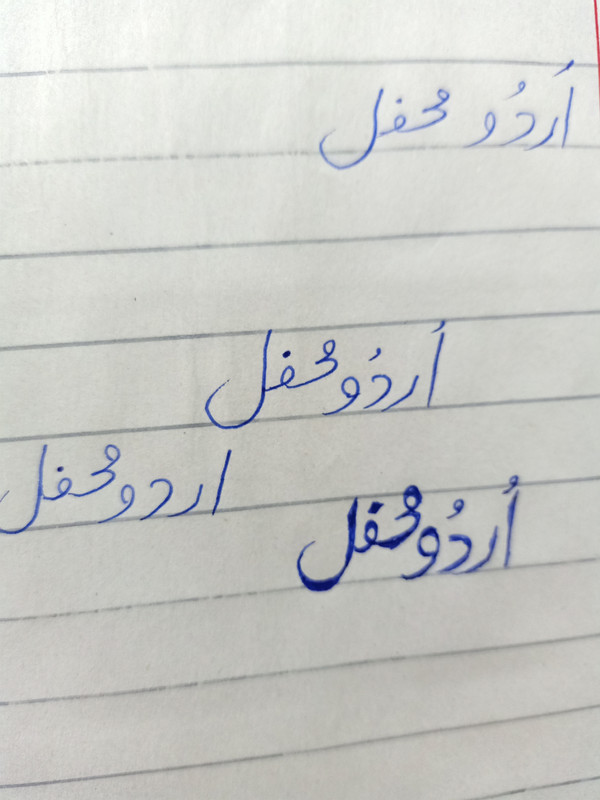 اُردُو محفل
اُردُو محفل
اردو محفل
اُردُو محفل